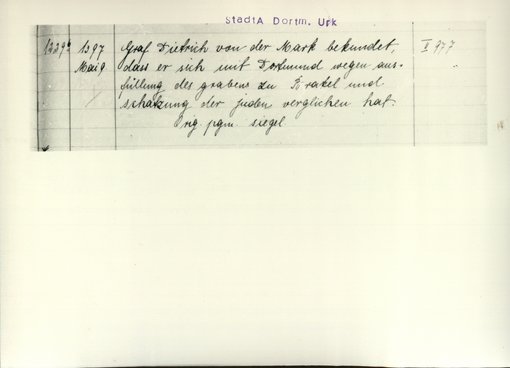 StadtA Dortm. Urk
1397 Graf Dietrich von der Mark bekundet, II 977
Mai 9 dass er sich mit Dortmund wegen aus- "
füllung des grabens zu Brakel und
schatzung der juden verglichen hat.
Orig. pgm. siegel